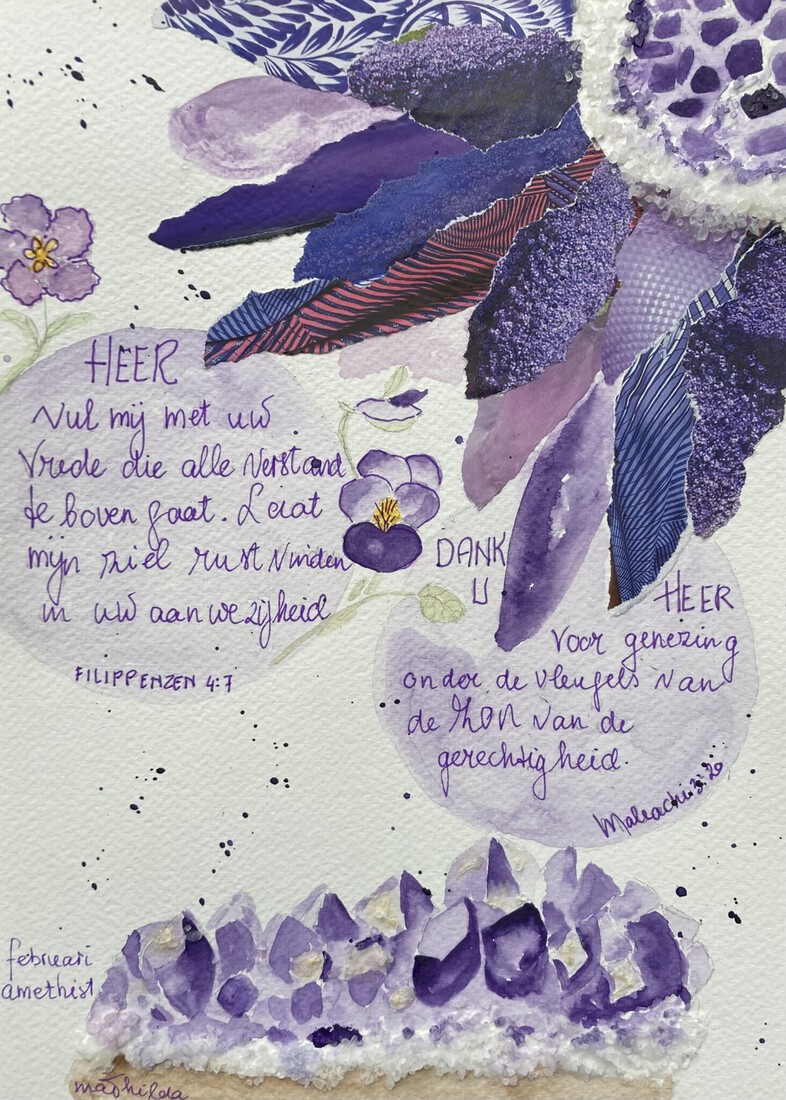 HEER
Vul mij met uw
Vrede die alle Verstand
te boven gaat. Laat
mijn ziel rust Vinden
in uw aanwezijheid
FILIPPENZEN 4:7
DANK
U
HEER
Voor genezing
onder de vleugels van
de zon van de
gerechtigheid.
Maleachi 3:20
februari
amethist
mathilda